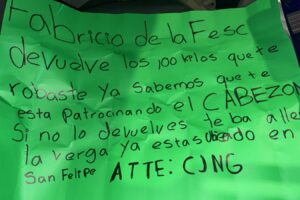 Fabricio de la Fesc
devuelve los 100 kilos que te
robaste Ya Sabemos que te
esta Patrocinando el CABEZON
Si no lo devuelves te ba a lle
la verga ya estas ubicado en
San Felipe ATTE: CJNG